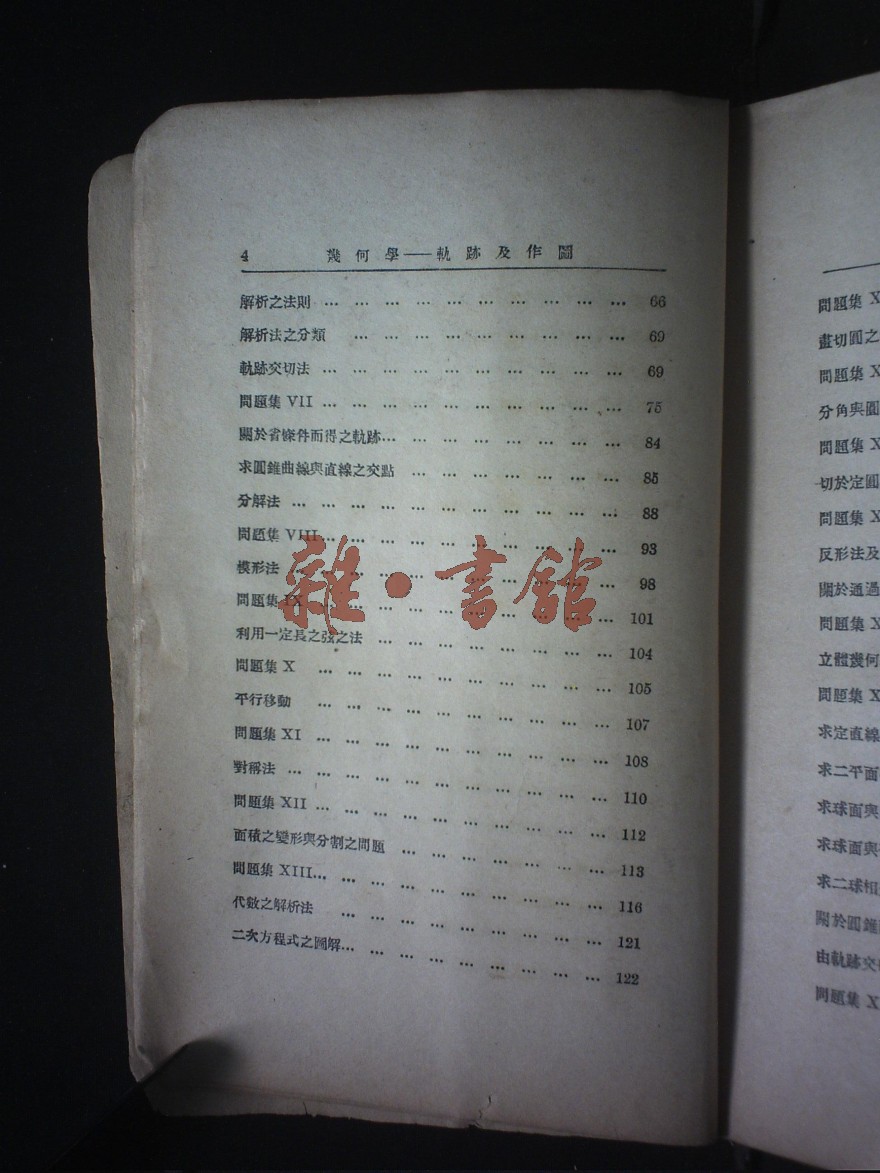 4 幾何學——軌跡及作圖
解析之法則 … … … … … … … … … … … 66
解析法之分類 … … … … … … … … … … 69
軌跡交切法 … … … … … … … … … … … 69
問題集 VII … … … … … … … … … … … 75
關於省條件而得之軌跡… … … … … … … … … 84
求圓錐曲線與直線之交點 … … … … … … … … 85
分解法 … … … … … … … … … … … … 88
問題集 VIII… … … … … … … … … … … 93
模形法 … … … … … … … … … … … … 98
問題集 IX … … … … … … … … … … … 101
利用一定長之弦之法 … … … … … … … … … 104
問題集 X … … … … … … … … … … … 105
平行移動 … … … … … … … … … … … 107
問題集 XI … … … … … … … … … … … 108
對稱法 … … … … … … … … … … … … 110
問題集 XII … … … … … … … … … … … 112
面積之變形與分割之問題 … … … … … … … … 113
問題集 XIII… … … … … … … … … … … 116
代數之解析法 … … … … … … … … … … 121
二次方程式之圖解… … … … … … … … … … 122
雜·書館
問題集 X
畫切圓之
問題集 X
分角與圓
問題集 X
切於定圓
問題集 X
反形法及
關於通過
問題集 X
立體幾何
問題集 X
求定直線
求二平面
求球面與
求球面與
求二球相
關於圓錐
由軌跡交
問題集 X